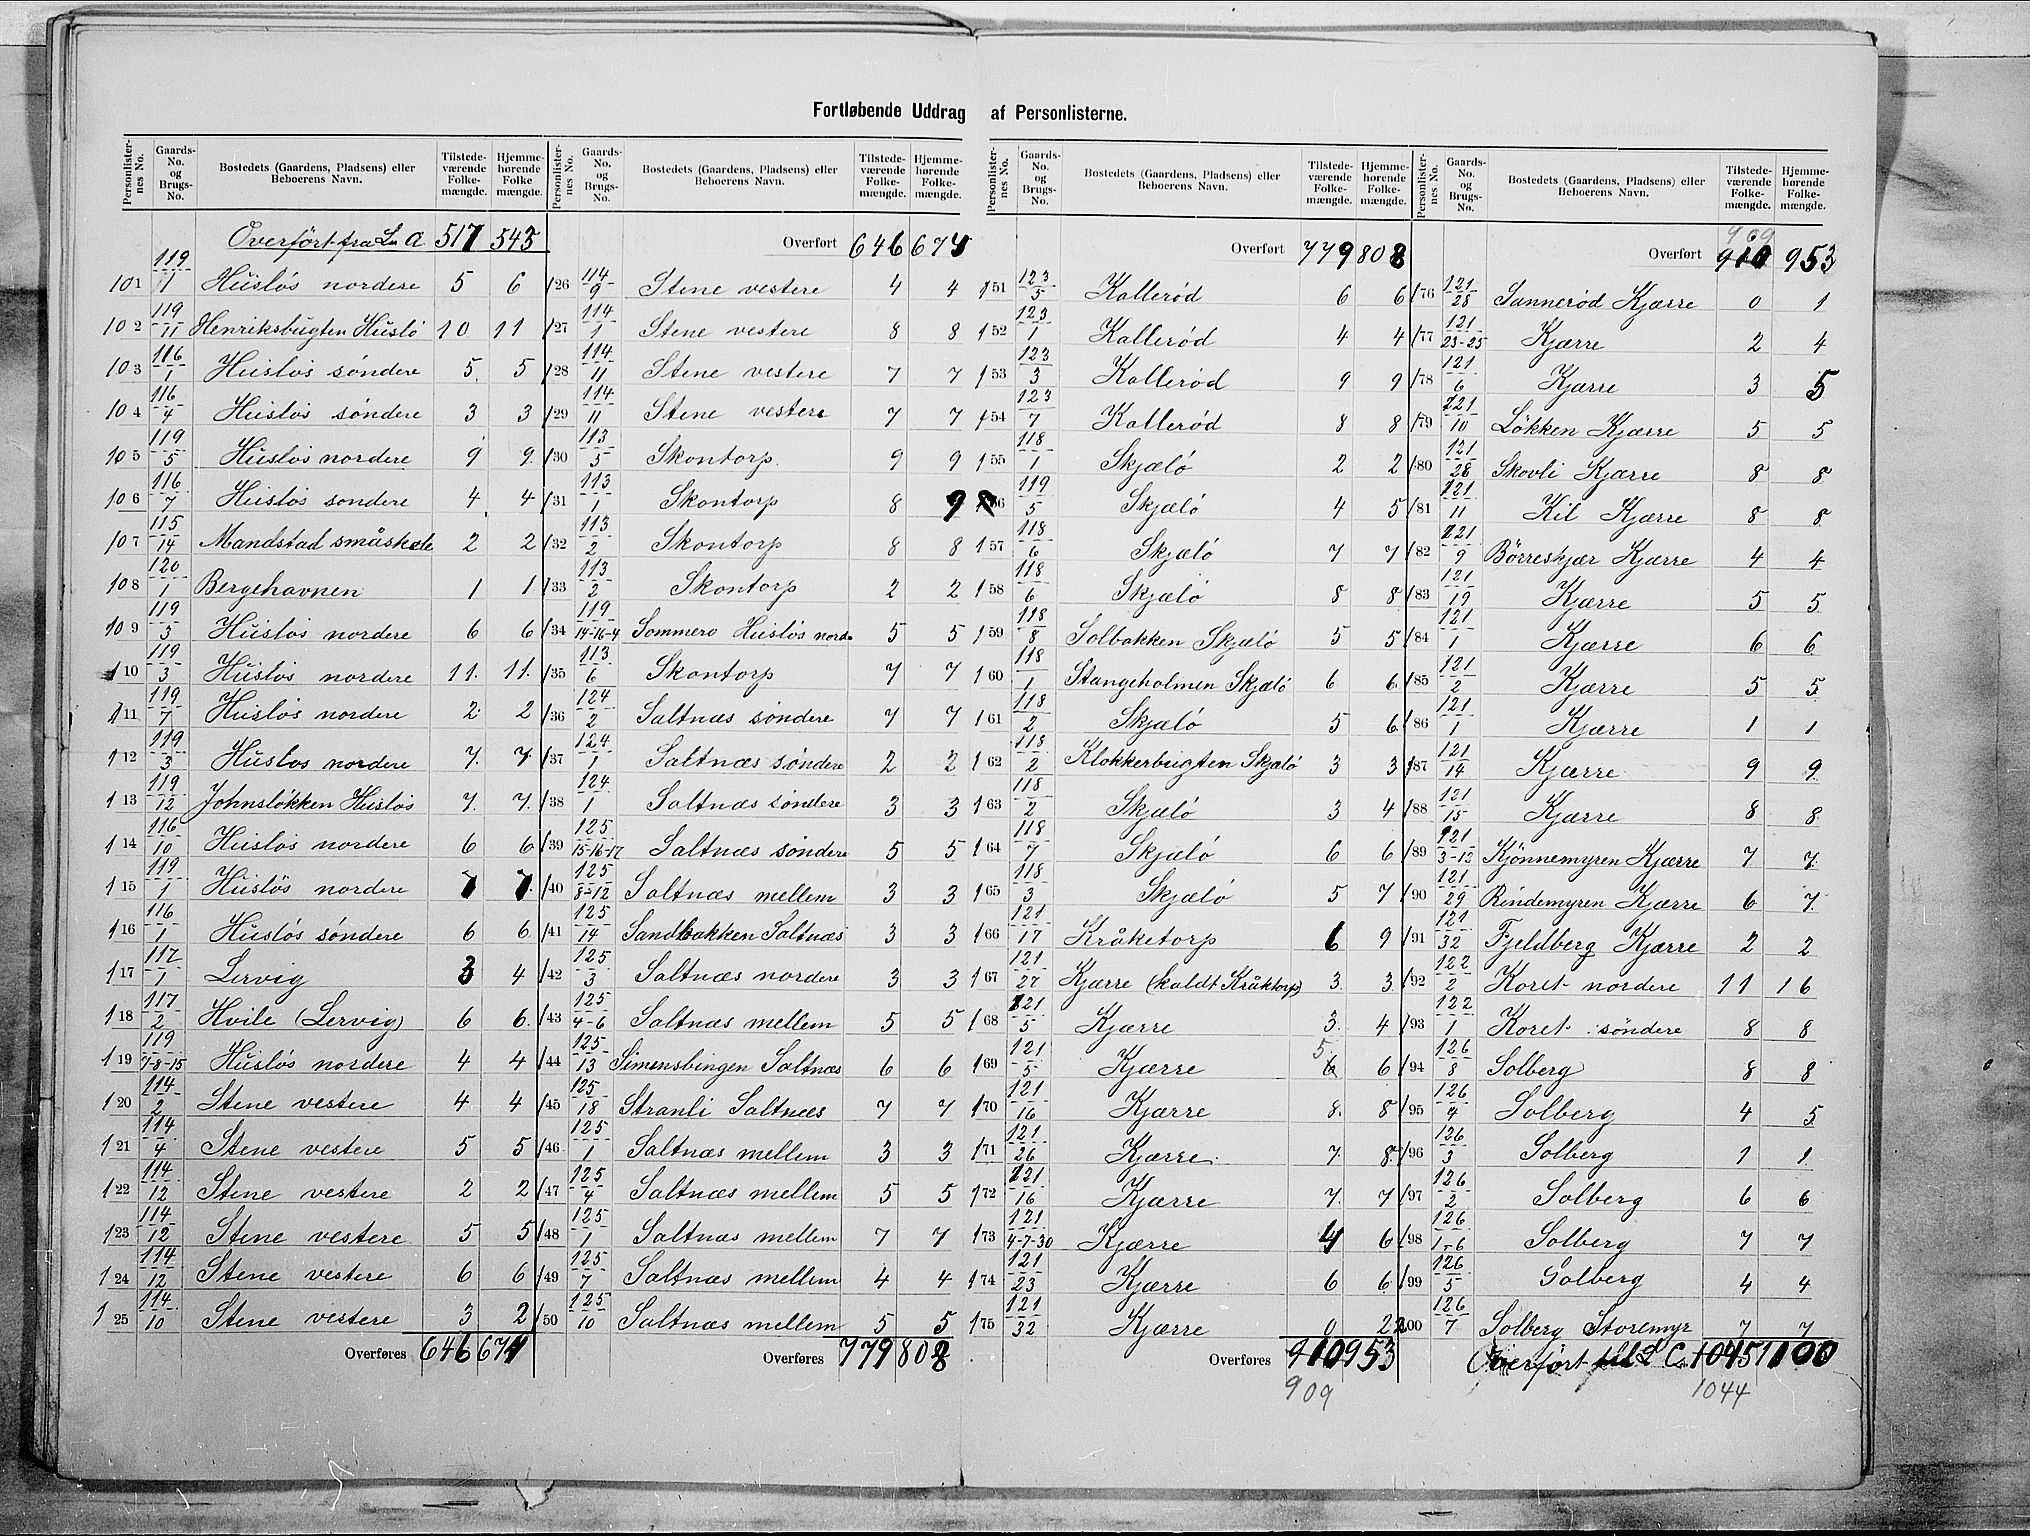 Fortløbende Uddrag af Personlisterne.
Personlisternes No. Gaards-No. og Brugs-No. Bostedets (Gaardens, Pladsens) eller Beboerens Navn. Tilstedeværende Folkemængde. Hjemmehørende Folkemængde.
Overført fra L. A 517 545
101 119/1 Husløs nordere 5 6
102 119/11 Henriksbugten Huslö 10 11
103 116/1 Husløs søndere 5 5
104 116/4 Husløs søndere 3 3
105 119/5 Husløs nordere 9 9
106 116/7 Husløs sondere 4 4
107 115/14 Mandstad småskole 2 2
108 120/1 Bergehavnen 1 1
109 119/3 Husløs nordere 6 6
110 119/3 Husløs nordere 11 11
111 119/7 Husløs nordere 2 2
112 119/3 Husløs nordere 7 7
113 119/12 Johnsløkken Husløs 7 7
114 116/10 Husløs nordere 6 6
115 119/1 Husløs nordere 7 7
116 116/1 Husløs søndere 6 6
117 117/1 Lervig 3 4
118 117/2 Hvile (Lervig) 6 6
119 119/7-8-15 Husløs nordere 4 4
120 114/2 Stene vestere 4 4
121 114/4 Stene vestere 5 5
122 114/12 Stene vestere 2 2
123 114/12 Stene vestere 5 5
124 114/12 Stene vestere 6 6
125 114/10 Stene vestere 3 2
Overføres 646 671
Personlisternes No. Gaards-No. og Brugs-No. Bostedets (Gaardens, Pladsens) eller Beboerens Navn. Tilstedeværende Folkemængde. Hjemmehørende Folkemængde.
Overført 646 671
126 114/9 Stene vestere 4 4
127 114/1 Stene vestere 8 8
128 114/11 Stene vestere 7 7
129 114/11 Stene vestere 7 7
130 113/5 Skontorp 9 9
131 113/1 Skontorp 8 9
132 113/2 Skontorp 8 8
133 113/2 Skontorp 2 2
134 119/14-16-4 Sommero Husløs nord. 5 5
135 113/6 Skontorp 7 7
136 124/2 Saltnæs søndere 7 7
137 124/1 Saltnæs søndere 2 2
138 124/1 Saltnæs søndere 3 3
139 125/15-16-17 Saltnæs søndere 5 5
140 125/8-12 Saltnæs mellem 3 3
141 125/14 Sandbakken Saltnæs 3 3
142 125/3 Saltnæs nordere 3 3
143 125/4-6 Saltnæs mellem 5 5
144 125/13 Simensbingen Saltnæs 6 6
145 125/18 Stranli Saltnæs 7 7
146 125/1 Saltnæs mellem 3 3
147 125/4 Saltnæs mellem 5 5
148 125/1 Saltnæs mellem 7 7
149 125/7 Saltnæs mellem 4 4
150 125/10 Saltnæs mellem 5 5
Overføres 779 808
Personlisternes No. Gaards-No. og Brugs-No. Bostedets (Gaardens, Pladsens) eller Beboerens Navn. Tilstedeværende Folkemængde. Hjemmehørende Folkemængde.
Overført 779 808
151 123/5 Kallerød 6 6
152 123/1 Kallerød 4 4
153 123/3 Kallerød 9 9
154 123/7 Kallerød 8 8
155 118/1 Skjælø 2 2
156 119/5 Skjælø 4 5
157 118/6 Skjælö 7 7
158 118/6 Skjælø 8 8
159 118/8 Solbakken Skjælö 5 5
160 118/1 Stangeholmen Skjælö 6 6
161 118/2 Skjælö 5 6
162 118/2 Klokkerbugten Skjælö 3 3
163 118/2 Skjælö 3 4
164 118/7 Skjælö 6 6
165 118/3 Skjælö 5 7
166 121/17 Kråketorp 6 9
167 121/27 Kjærre (kaldt Kråktorp) 3 3
168 121/5 Kjærre 3 4
169 121/5 Kjærre 5 6 6
170 121/16 Kjærre 8 8
171 121/26 Kjærre 7 8
172 121/16 Kjærre 7 7
173 121/4-7-30 Kjærre 4 6
174 121/23 Kjærre 6 6
175 121/32 Kjærre 0 2
Overføres 910 953
909
Personlisternes No. Gaards-No. og Brugs-No. Bostedets (Gaardens, Pladsens) eller Beboerens Navn. Tilstedeværende Folkemængde. Hjemmehørende Folkemængde.
909
Overført 910 953
176 121/28 Sannerød Kjærre 0 1
177 121/23-25 Kjærre 2 4
178 121/6 Kjærre 3 5
179 121/10 Løkken Kjærre 5 5
180 121/28 Skovli Kjærre 8 8
181 121/11 Kil Kjærre 8 8
182 121/9 Børreskjær Kjærre 4 4
183 121/19 Kjærre 5 5
184 121/1 Kjærre 6 6
185 121/2 Kjærre 5 5
186 121/1 Kjærre 1 1
187 121/14 Kjærre 9 9
188 121/15 Kjærre 8 8
189 121/3-13 Kjønnemyren Kjærre 7 7
190 121/29 Rindemyren Kjærre 6 7
191 121/32 Fjeldberg Kjærre 2 2
192 122/2 Koret nordere 11 16
193 122/1 Koret søndere 8 8
194 126/8 Solberg 8 8
195 126/4 Solberg 4 5
196 126/3 Solberg 1 1
197 126/2 Solberg 6 6
198 126/1-6 Solberg 7 7
199 126/5 Solberg 4 4
200 126/7 Solberg Storemyr 7 7
Overført til L C. 1045 1100
1044